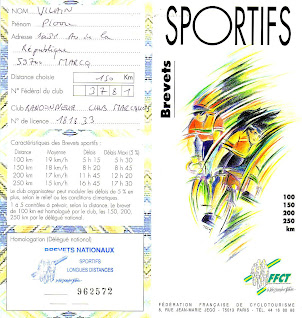 NOM VILAIN
Prénom Pierre
Adresse de la
République
59700 MARCQ
Distance choisie 150 Km
N° Fédéral du club 3781
Club RANDONNEUR CLUB MARCQUOIS
N° de licence 181833
Caractéristiques des Brevets sportifs :
Distance Moyenne Délais Délais Maxi (5 %)
100 km 19 km/h 5 h 15 5 h 30
150 km 18 km/h 8 h 20 8 h 45
200 km 17 km/h 11 h 45 12 h 20
250 km 15 km/h 16 h 45 17 h 30
Le club organisateur peut moduler les délais de 5 % en
plus, selon le relief ou les conditions climatiques.
1 à 5 contrôles à préciser, selon la distance. Le brevet
de 100 km est homologué par le club, les 150, 200,
250 km par le délégué national.
Homologation (Délégué national)
BREVETS NATIONAUX
SPORTIFS
LONGUES DISTANCES
962572
SPORTIFS
Brevets
100
150
200
250
km
FFCT
FÉDÉRATION FRANÇAISE DE CYCLOTOURISME
8, RUE JEAN-MARIE JEGO - 75013 PARIS - TÉL. 44 16 88 88